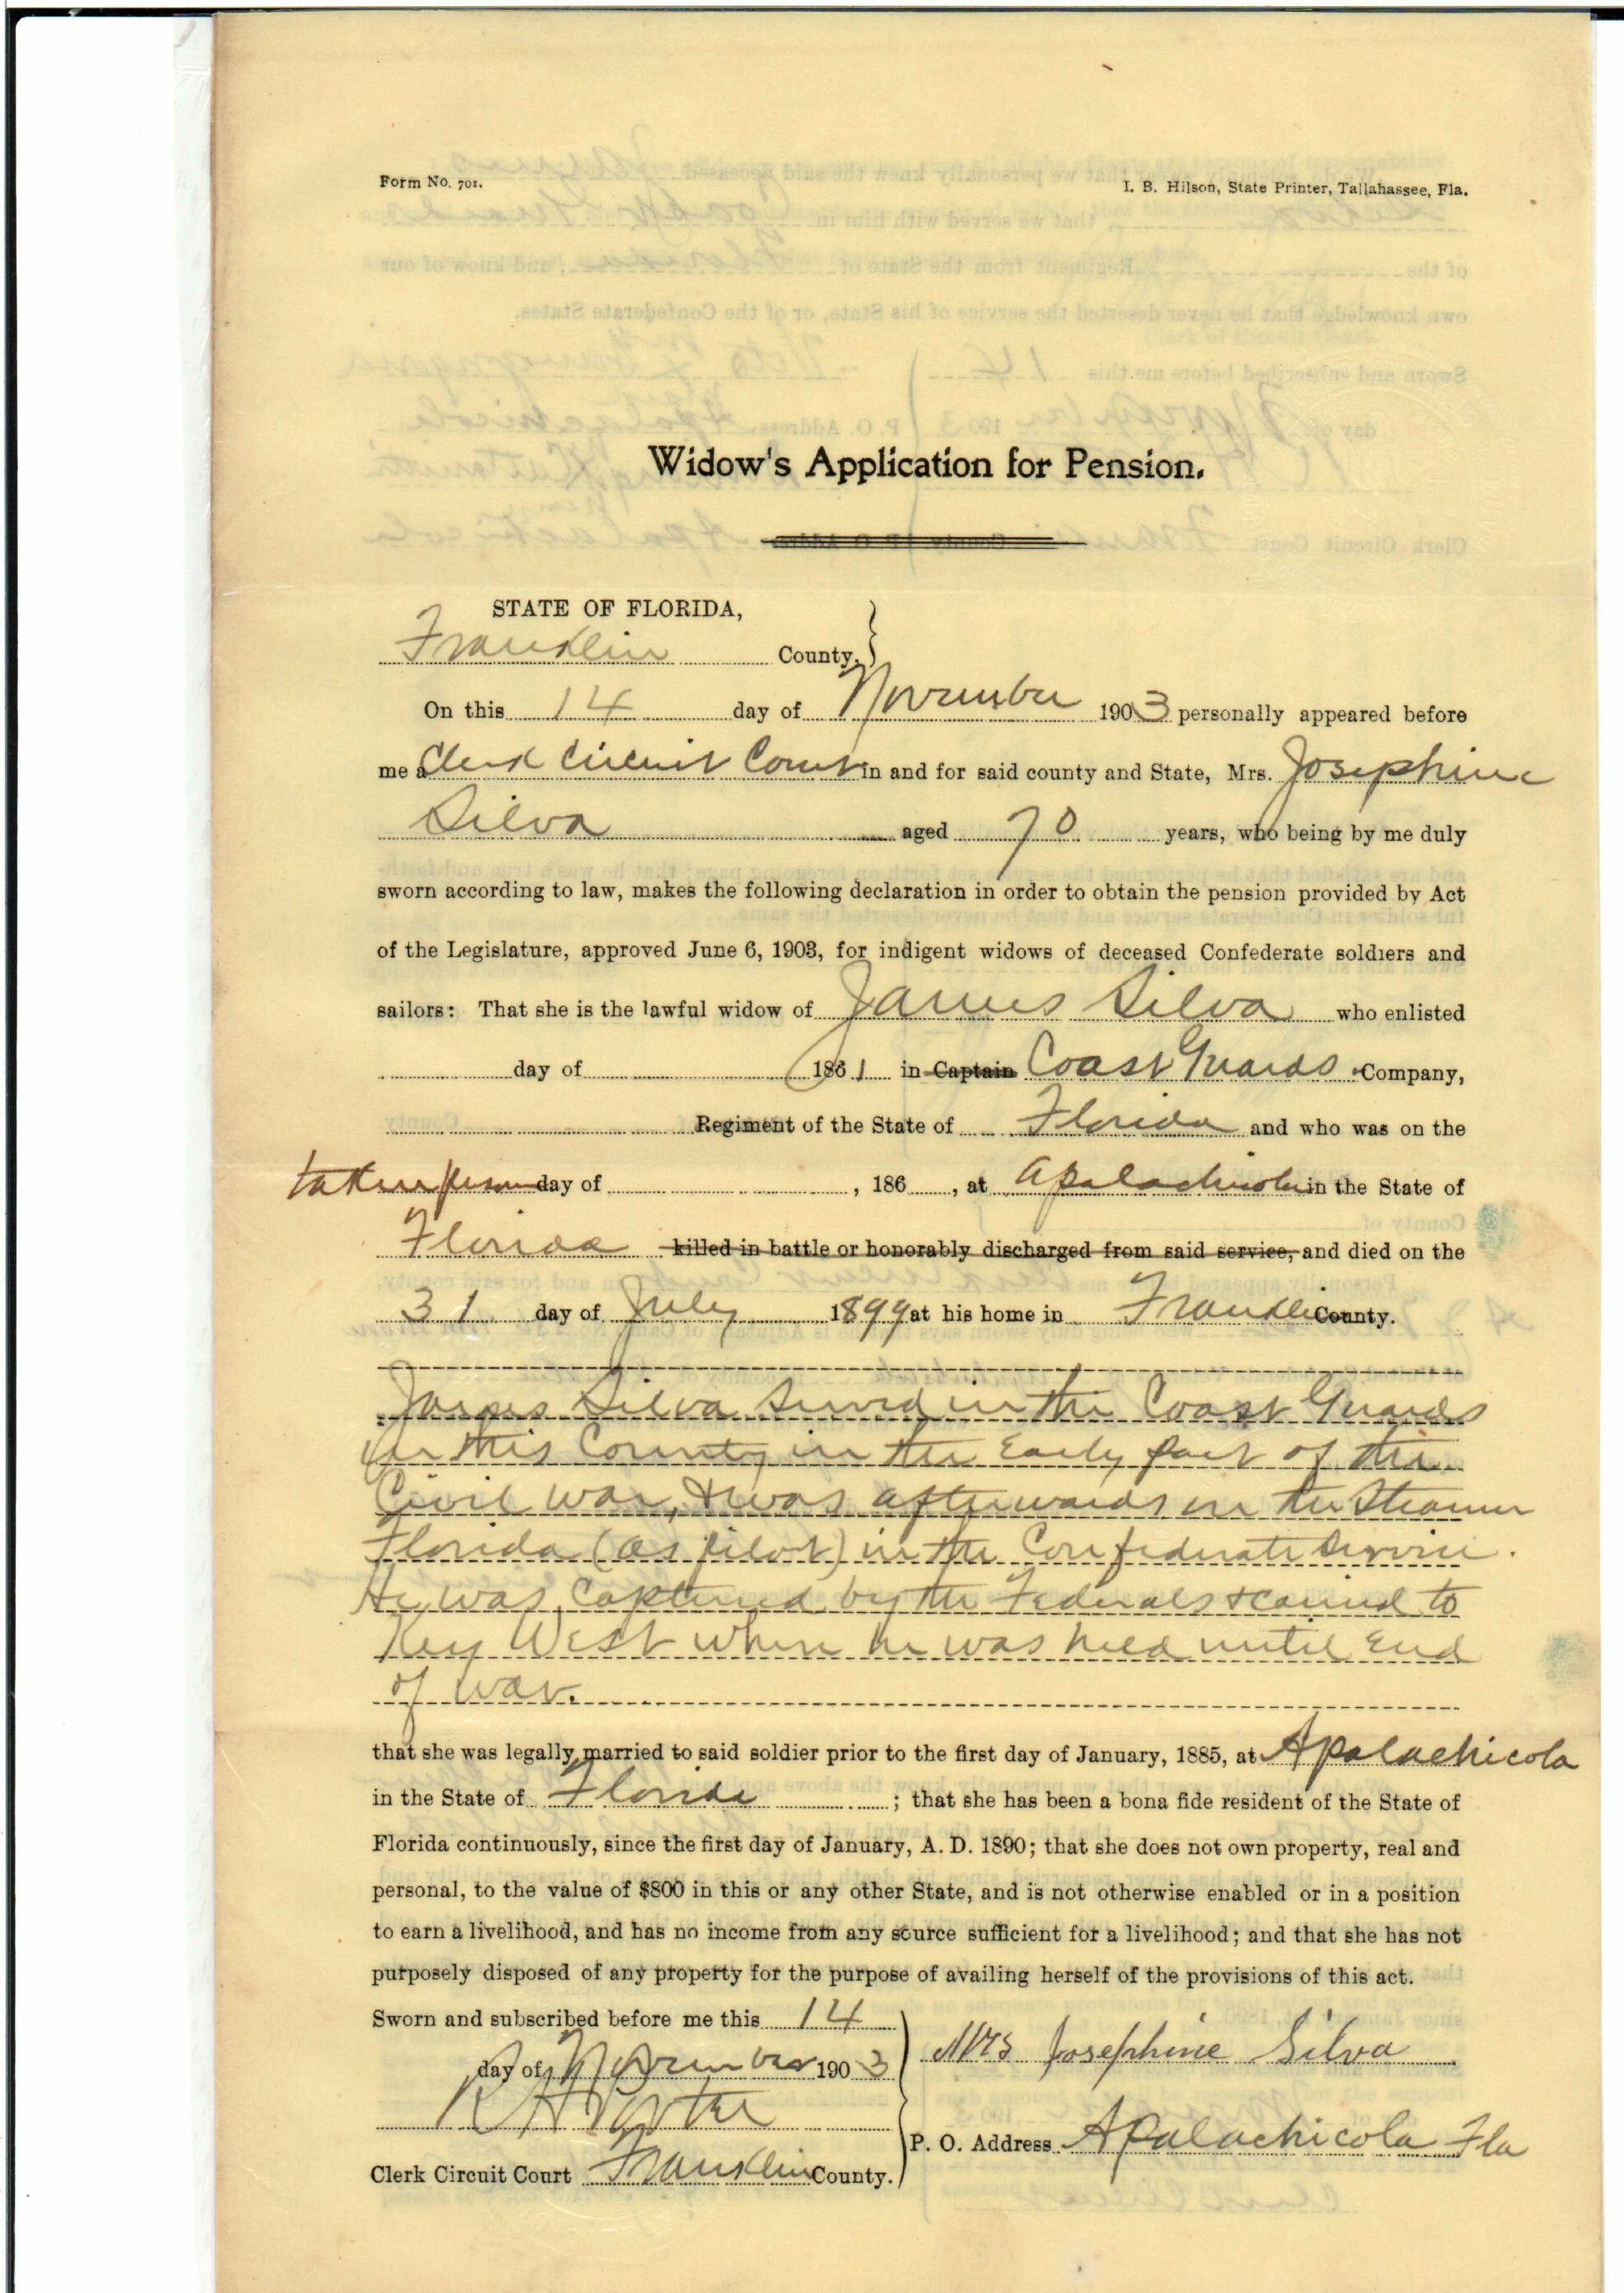 Form No. 701.
I. B. Hilson, State Printer, Tallahassee, Fla.
Widow's Application for Pension.
STATE OF FLORIDA,
Franklin County,
On this 14 day of November 1903 personally appeared before
me a Clerk Circuit Court in and for said county and State, Mrs. Josephine
Silva aged 70 years, who being by me duly
sworn according to law, makes the following declaration in order to obtain the pension provided by Act
of the Legislature, approved June 6, 1903, for indigent widows of deceased Confederate soldiers and
sailors: That she is the lawful widow of James Silva who enlisted
day of 1861 in Captain Coast Guards Company,
Regiment of the State of Florida and who was on the
taken day of , 186 , at Apalachicola in the State of
Florida killed in battle or honorably discharged from said service, and died on the
31 day of July 1899 at his home in Franklin County.
James Silva served in the Coast Guards
in this County in the Early part of the
Civil War, & was afterwards on the Steamer
Florida (as pilot) in the Confederate Service.
He was captured by the Federals & carried to
Key West where he was held until End
of war.
that she was legally married to said soldier prior to the first day of January, 1885, at Apalachicola
in the State of Florida ; that she has been a bona fide resident of the State of
Florida continuously, since the first day of January, A. D. 1890; that she does not own property, real and
personal, to the value of $800 in this or any other State, and is not otherwise enabled or in a position
to earn a livelihood, and has no income from any source sufficient for a livelihood; and that she has not
purposely disposed of any property for the purpose of availing herself of the provisions of this act.
Sworn and subscribed before me this 14
day of November 1903
Mrs Josephine Silva
R H Porter
P. O. Address Apalachicola Fla
Clerk Circuit Court Franklin County.